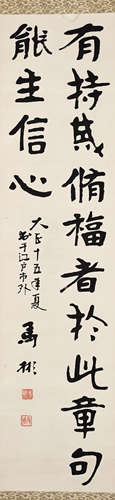 有持戒脩福者於此章句
能生信心
大正十五年夏
書于江戸市外